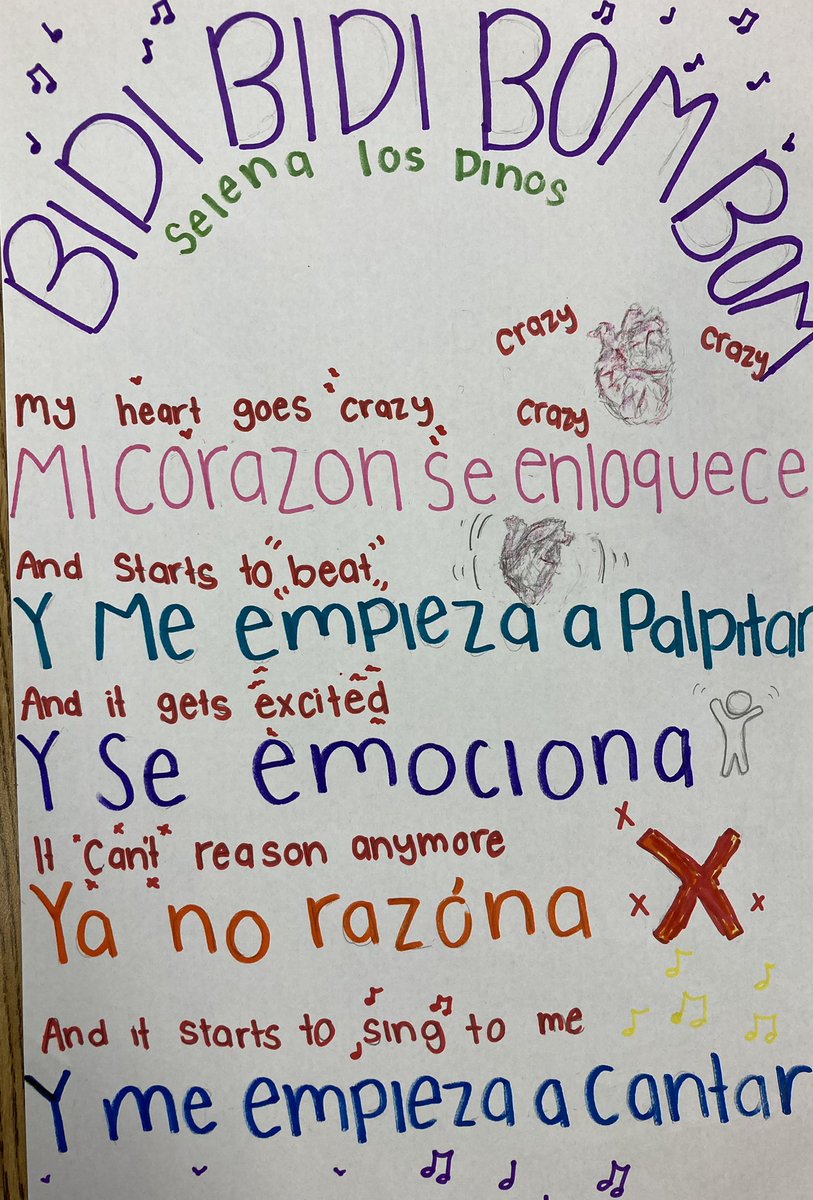 BIDI BIDI BOM BOM
Selena los Dinos
crazy
crazy
my heart goes crazy crazy
Mi corazon se enloquece
And starts to beat
Y Me empieza a Palpitar
And it gets excited
Y Se emociona
It can't reason anymore
Ya no razóna
And it starts to sing to me
Y me empieza a cantar